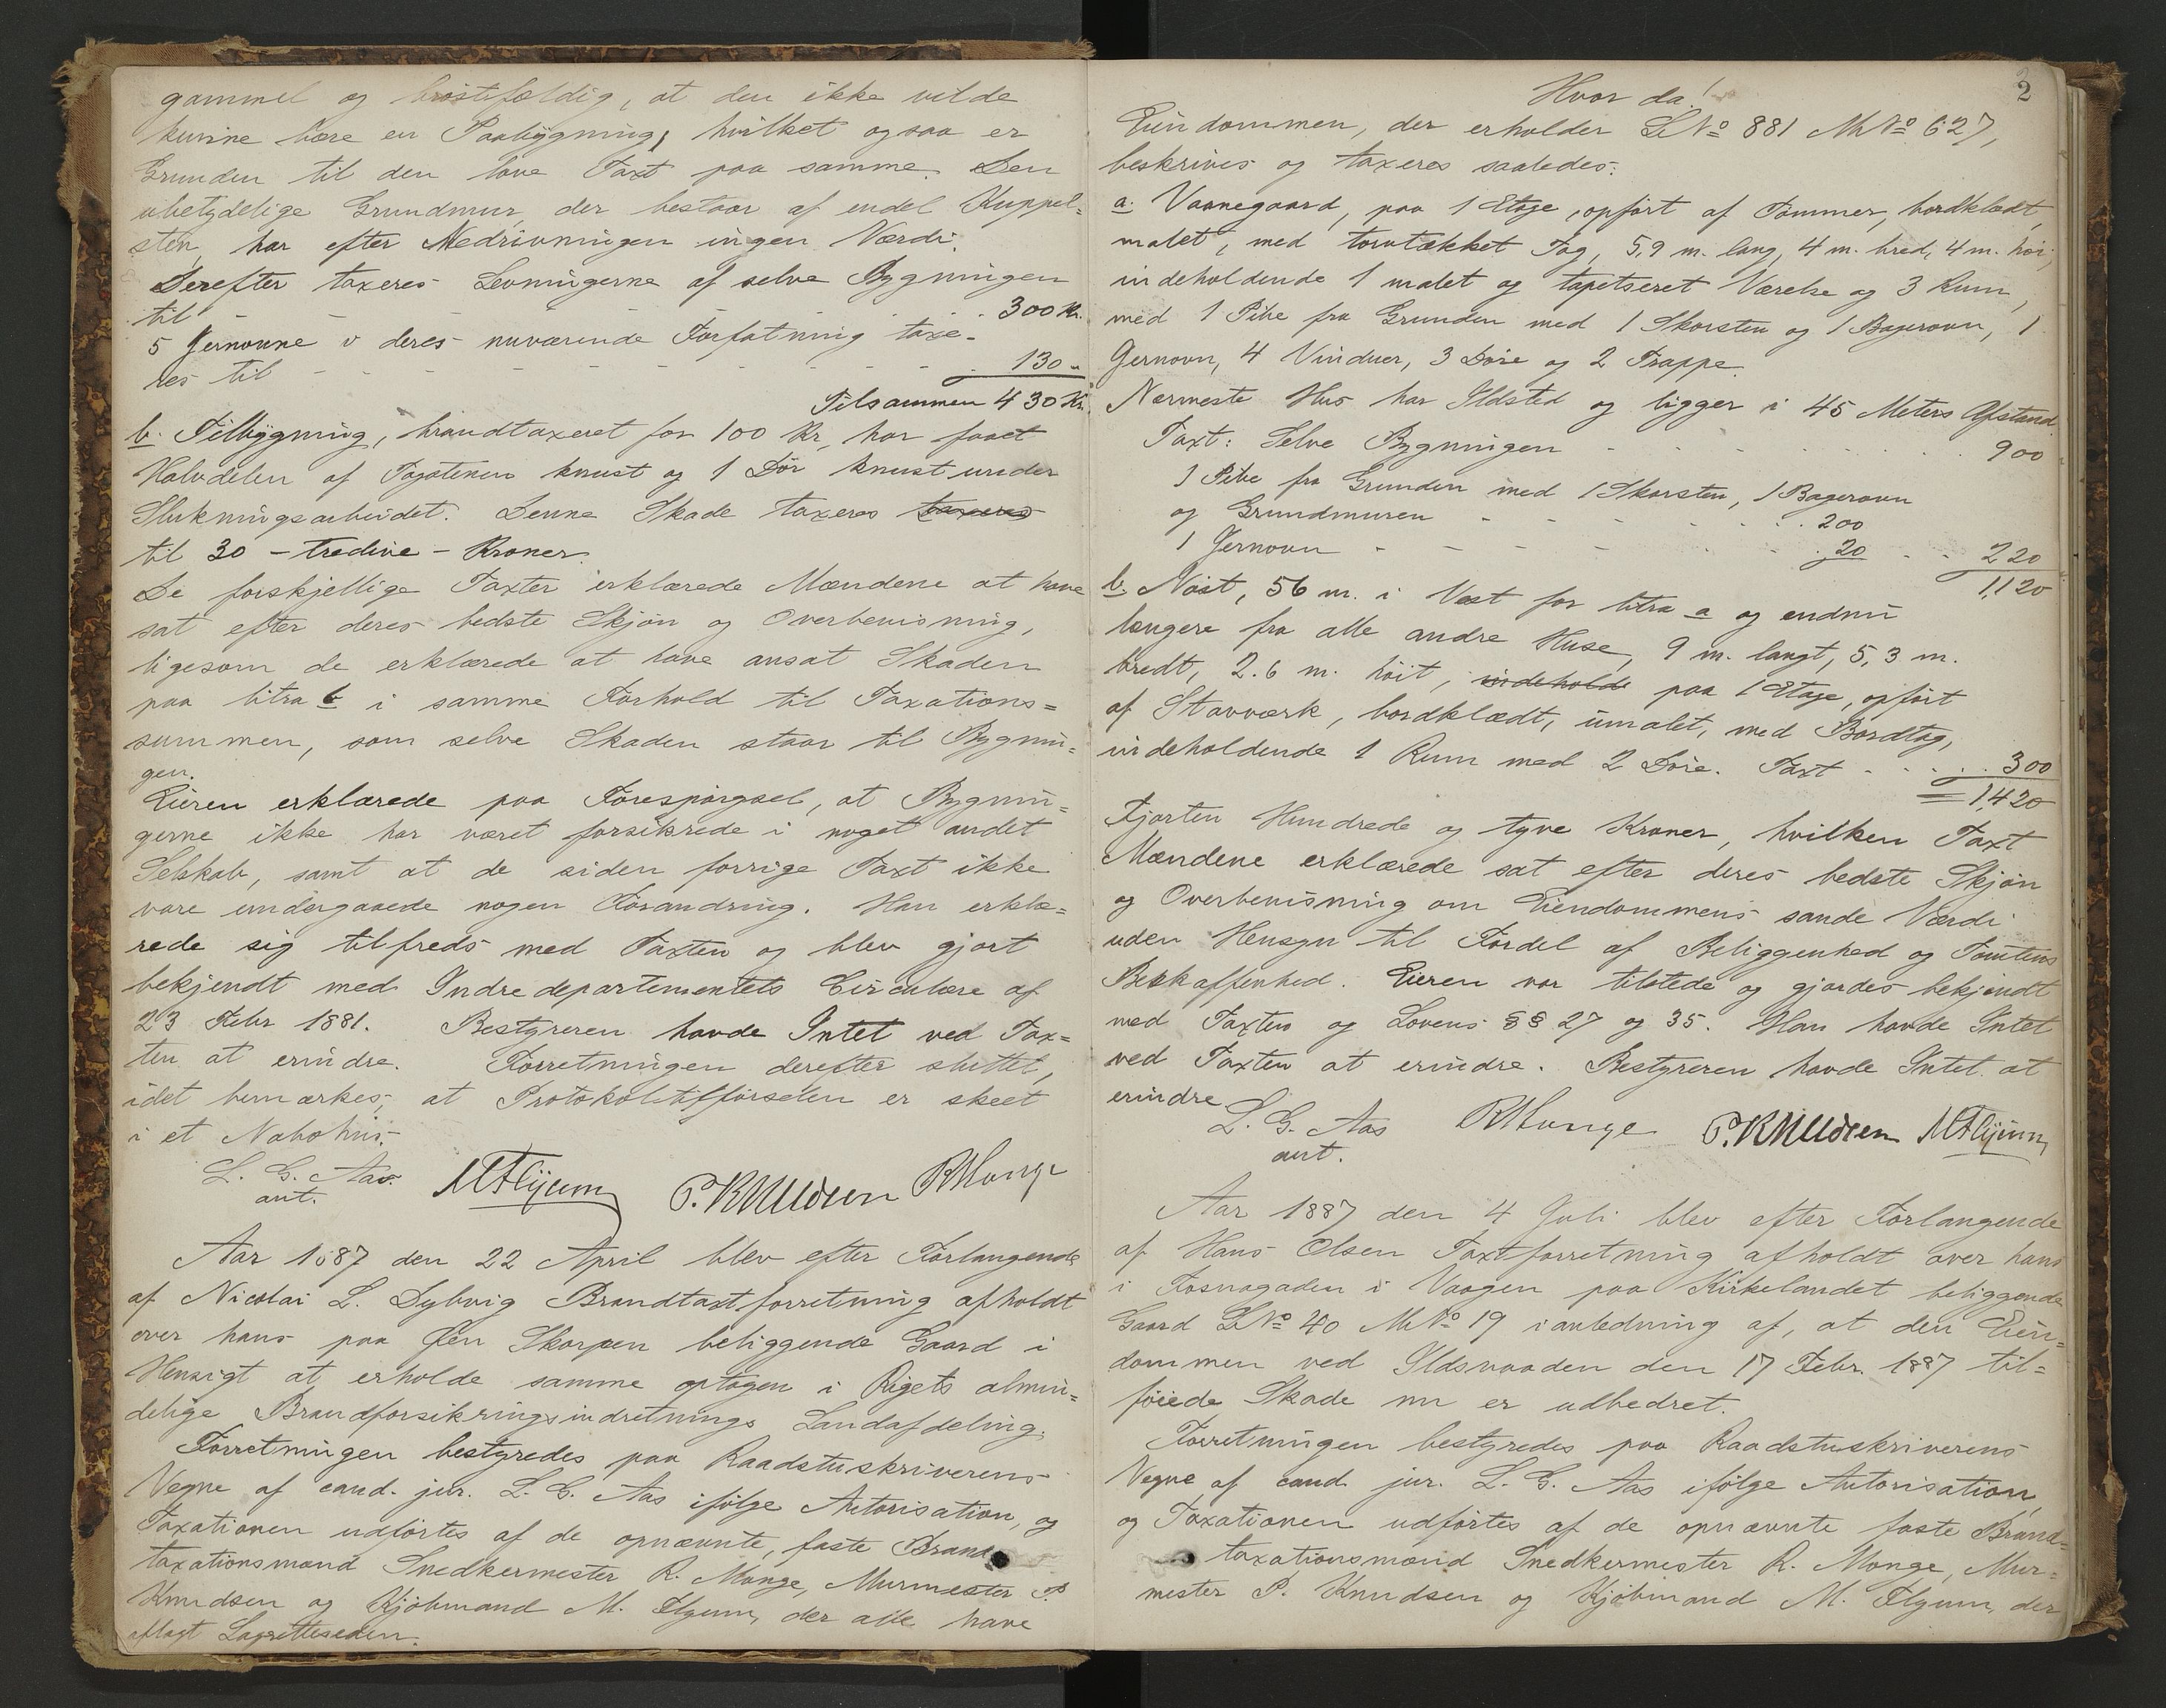 gammel og bröstfældig, at den ikke vilde
kunne bære en Paabygning, hvilket ogsaa er
Grunden til den lave Taxt paa samme. Den
ubetydelige Grundmur, der bestaar af endel Kuppel=
sten, har efter Nedrivningen ingen Værdi.
Derefter taxeres Levningerne af selve Bygningen
til - - - - 300 Kr.
5 Jernovne i deres nuværende Forfatning taxe-
res til - - - - 130 "
Tilsammen 430 Kr.
b. Tilbygning, brandtaxeret for 100 Kr, har faaet
Halvdelen af Tagstenen knust og 1 Dör knust under
Slukningsarbeidet. Denne Skade taxeres taxeres
til 30 - tredive - Kroner.
De forskjellige Taxter erklærede Mændene at have
sat efter deres bedste Skjön og Overbevisning,
ligesom de erklærede at have ansat Skaden
paa litra b i samme Forhold til Taxations=
summen, som selve Skaden staar til Bygnin=
gen.
Eieren erklærede paa Forespörgsel, at Bygnin=
gerne ikke har været forsikrede i noget andet
Selskab, samt at de siden forrige Taxt ikke
vare undergaaede nogen Forandring. Han erklæ=
rede sig tilfreds med Taxten og blev gjort
bekjendt med Indredepartementets Circulære af
23 Febr 1881. Bestyreren havde Intet ved Tax=
ten at erindre. Forretningen derefter sluttet,
idet bemærkes, at Protokoltilförselen er skeet
i et Nabohus.
L. G. Aas. MFlyum P. Knudsen RMonge
aut.
Aar 1887 den 22 April blev efter Forlangende
af Nicolai L. Dybvig Brandtaxtforretning afholdt
over hans paa Öen Skorpen beliggende Gaard i
Hensigt at erholde samme optagen i Rigets almin=
delige Brandforsikringsindretnings Landafdeling.
Forretningen bestyredes paa Raadstuskriverens
Vegne af cand. jur. L. G. Aas ifölge Autorisation, og
Taxationen udförtes af de opnævnte, faste Brand
taxationsmænd Snedkermester R. Monge, Murmester P.
Knudsen og Kjöbmand M. Flyum, der alle have
aflagt Lagretteseden.
2
Hvor da!
Eiendommen, der erholder LNo 881 MNo 627,
beskrives og taxeres saaledes:
a. Vaanegaard, paa 1 Etage, opfört af Tømmer, bordklædt,
malet, med torvtækket Tag, 5,9 m. lang, 4 m. bred, 4 m. höi,
indeholdende 1 malet og tapetseret Værelse og 3 Rum,
med 1 Pibe fra Grunden med 1 Skorsten og 1 Bagerovn, 1
Jernovn, 4 Vinduer, 3 Döre og 2 Trappe.
Nærmeste Hus har Ildsted og ligger i 45 Meters Afstand.
Taxt: Selve Bygningen - - - - 900
1 Pibe fra Grunden med 1 Skorsten, 1 Bagerovn
og Grundmuren - - - - 200
1 Jernovn - - - - 20 - - 220
1,120
b. Nöst, 56 m. i Vest for litra a og endnu
længere fra alle andre Huse, 9 m. langt, 5,3 m.
bredt, 2.6 m. höit, indeholde paa 1 Etage, opfört
af Stavværk, bordklædt, umalet, med Bordtag,
indeholdende 1 Rum med 2 Döre. Taxt - - - 300
= 1,420
Fjorten Hundrede og tyve Kroner, hvilken Taxt
Mændene erklærede sat efter deres bedste Skjön
og Overbevisning om Eiendommens sande Værdi
uden Hensyn til Fordel af Beliggenhed og Tomtens
Beskaffenhed. Eieren var tilstede og gjordes bekjendt
med Taxten og Lovens §§ 27 og 35. Han havde Intet
ved Taxten at erindre. Bestyreren havde Intet at
erindre
L. G. Aas RMonge P. Knudsen MFlyum
aut.
Aar 1887 den 4 Juli blev efter Forlangende
af Hans Olsen Taxtforretning afholdt over hans
i Fosnagaden i Vaagen paa Kirkelandet beliggende
Gaard LNo 40 MNo 19 i anledning af, at den Eien=
dommen ved Ildsvaaden den 17 Febr. 1887 til=
föiede Skade nu er udbedret.
Forretningen bestyredes paa Raadstuskriverens
Vegne af cand. jur. L. G. Aas ifölge Autorisation,
og Taxationen udförtes af de opnævnte faste Brand-
taxationsmænd Snedkermester R. Monge, Mur=
mester P. Knudsen og Kjöbmand M. Flyum, der